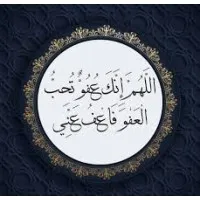 اللَّهُمَّ إِنَّكَ عَفُوٌّ تُحِبُّ
الْعَفْوَ فَاعْفُ عَنِّي